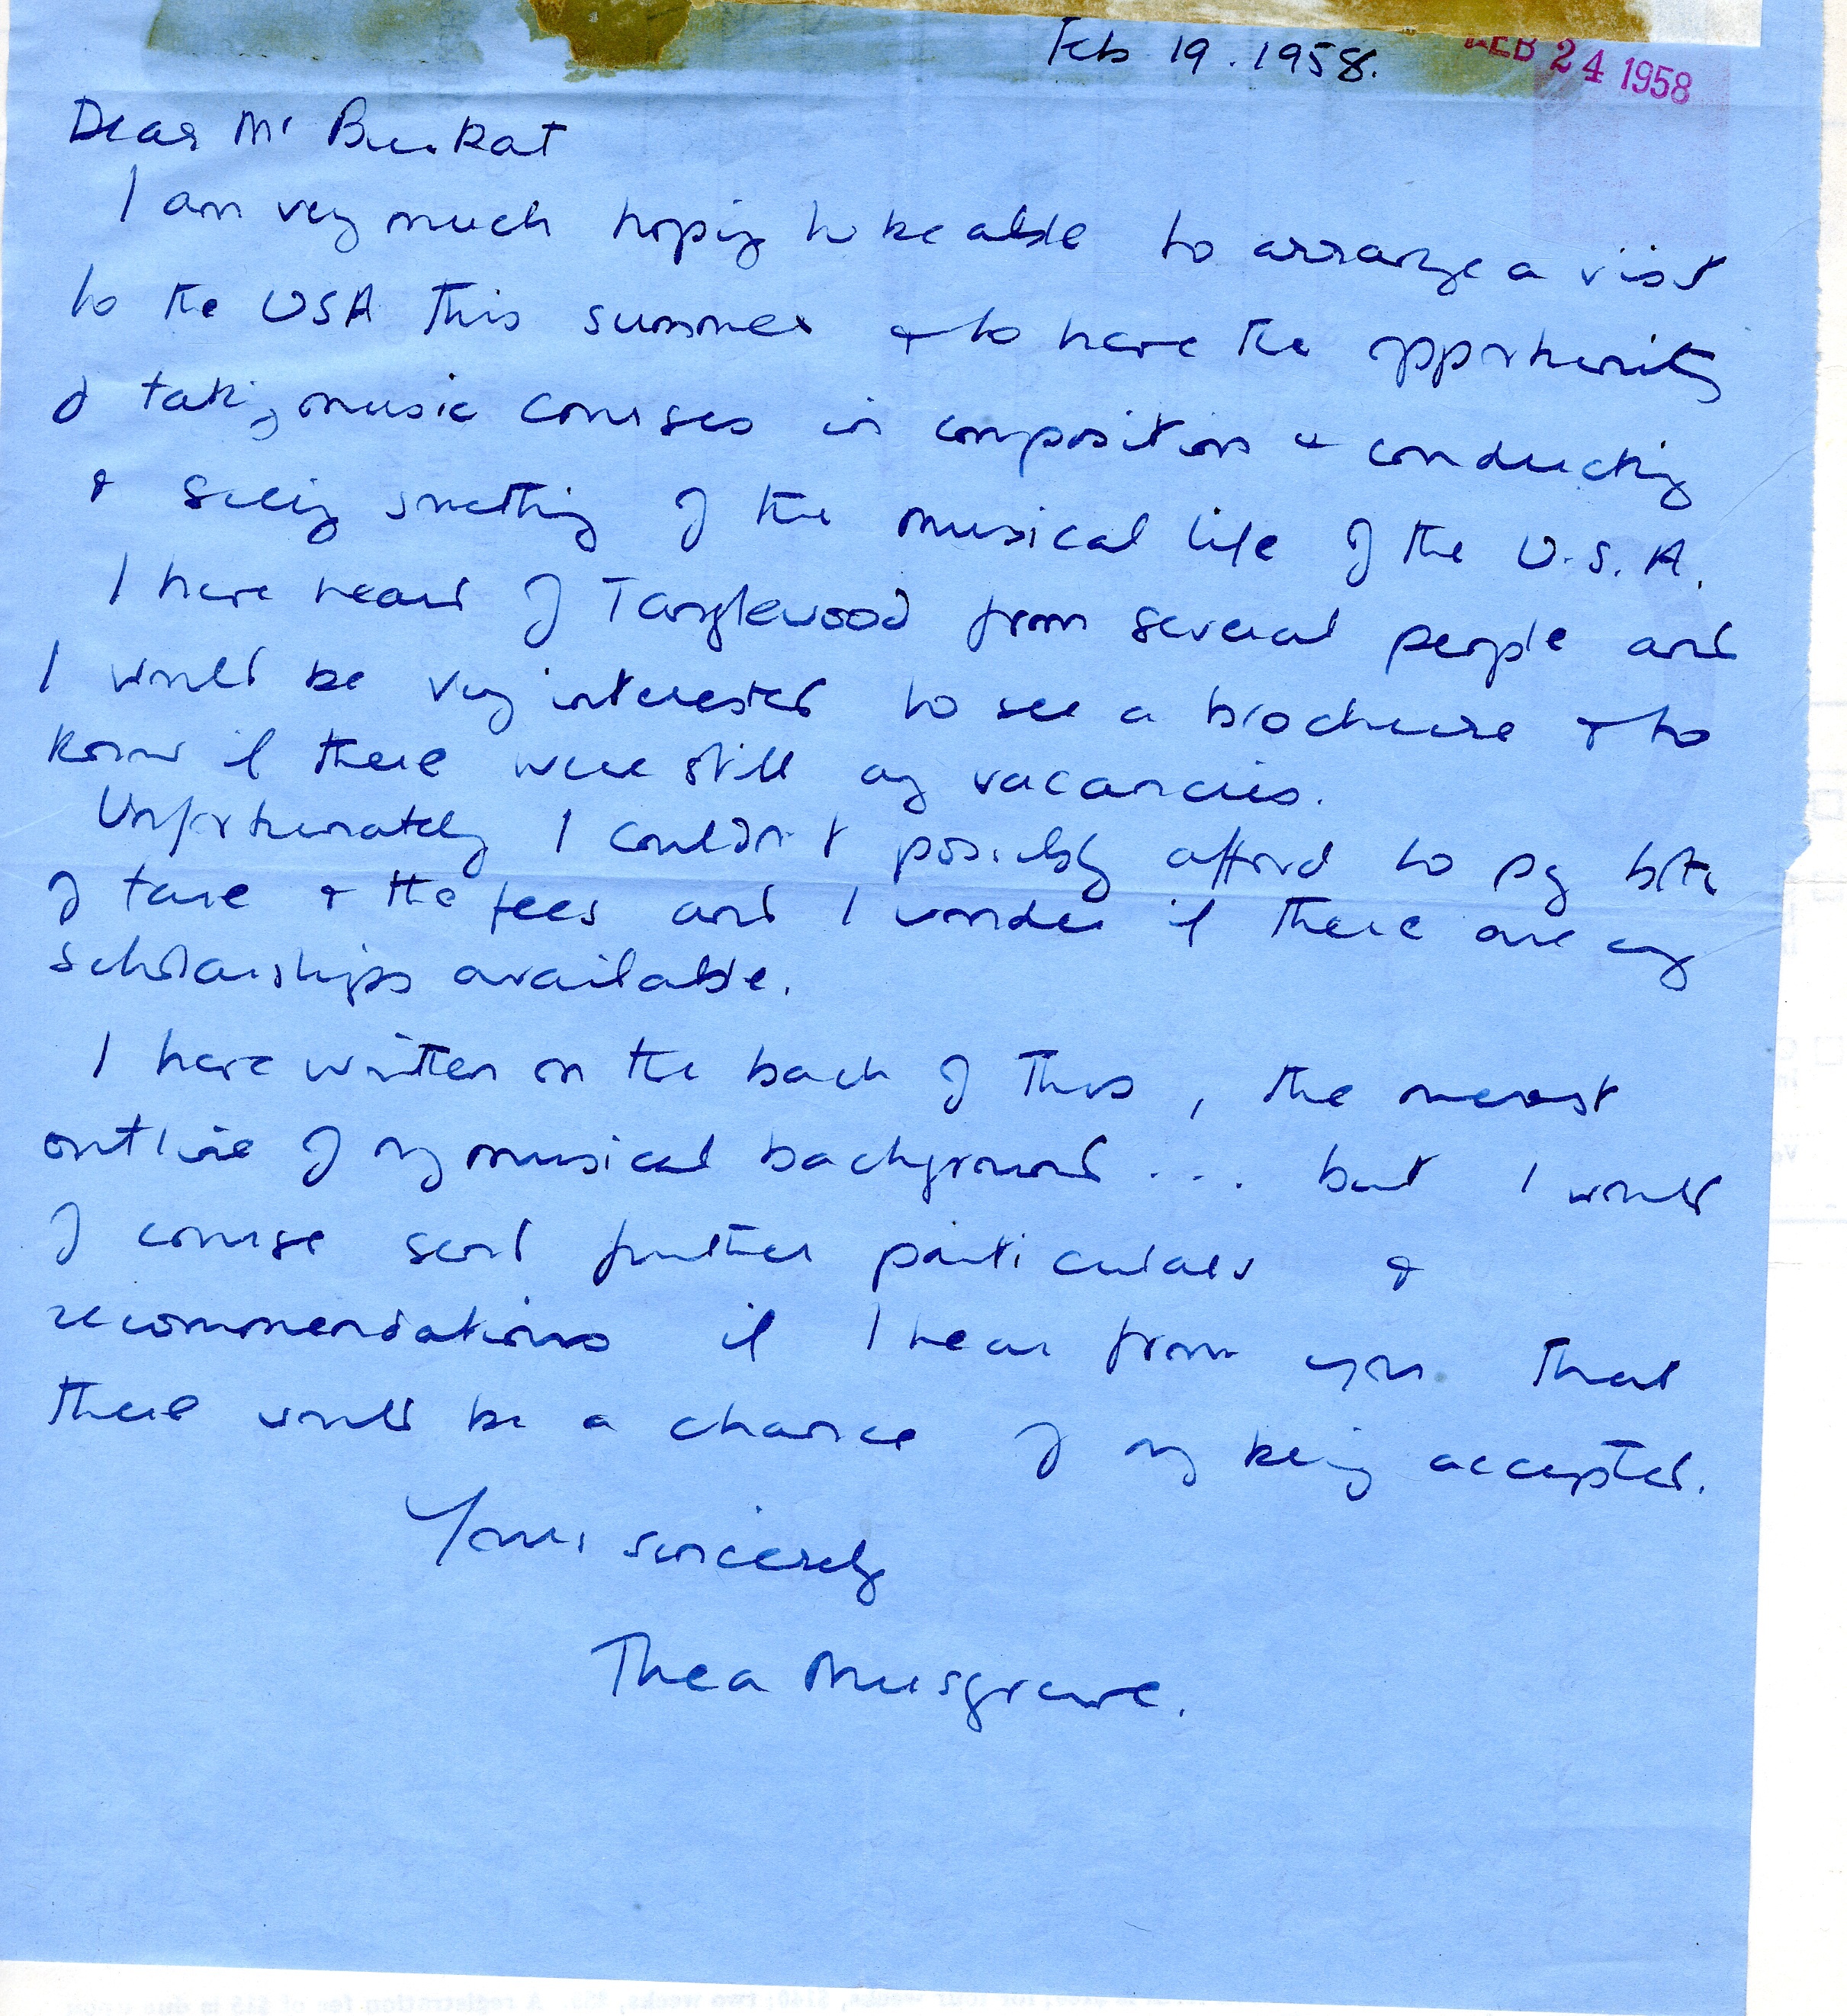 Feb 19. 1958.
FEB 24 1958
Dear Mr Burkat
I am very much hoping to be able to arrange a visit
to the USA this summer & to have the opportunity
of taking music courses in composition & conducting
& seeing something of the musical life of the U.S.A.
I have heard of Tanglewood from several people and
I would be very interested to see a brochure & to
know if there were still any vacancies.
Unfortunately I couldn't possibly afford to pay both
fare & the fees and I wonder if there are any
scholarships available.
I have written on the back of this, the merest
outline of my musical background ... but I would
of course send further particulars &
recommendations if I hear from you that
there would be a chance of my being accepted.
Yours sincerely
Thea Musgrave.